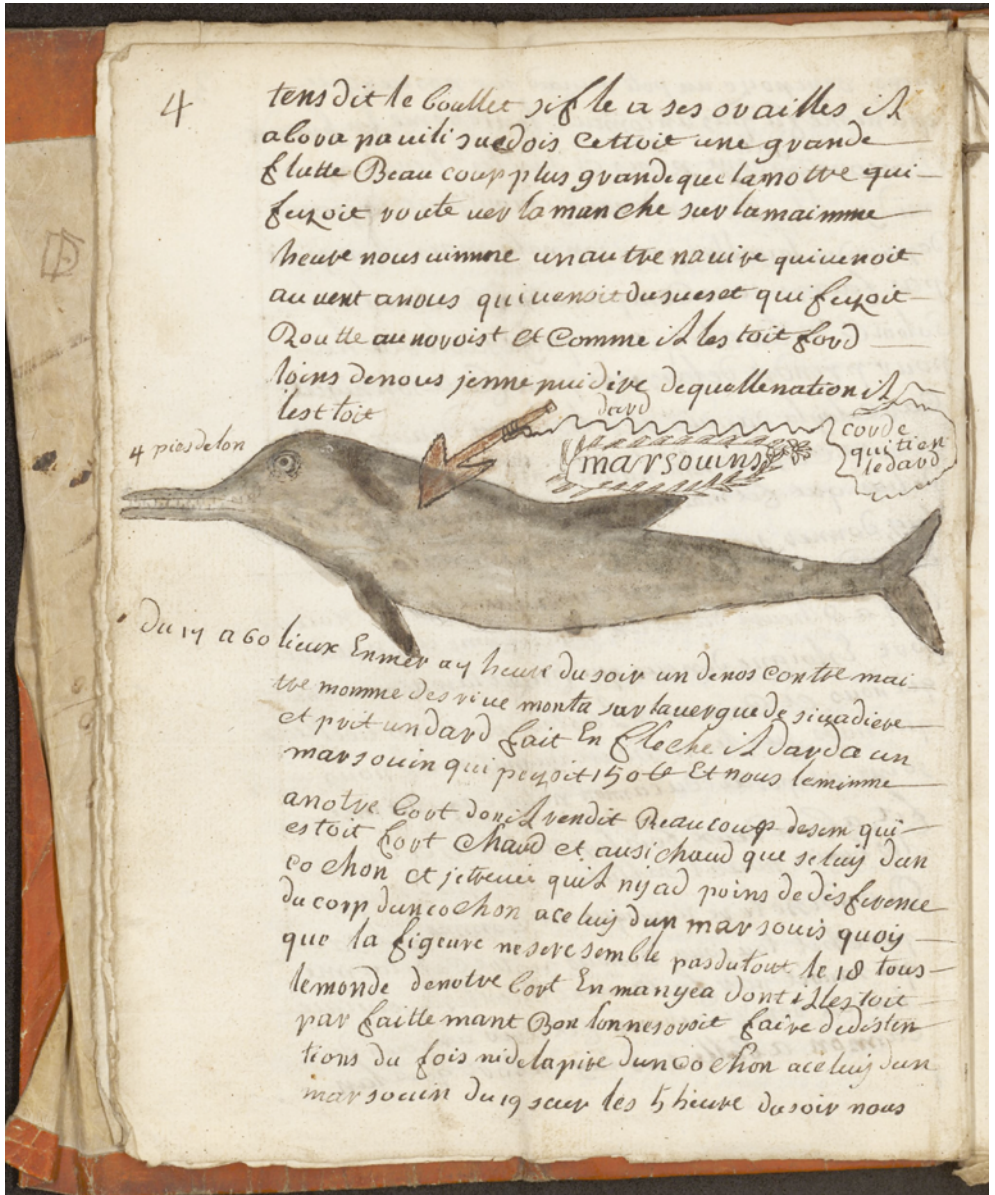 4
tens dit le boullet sifle a ses orailles il
abora pavili suedois cettoit une grande
flutte Beaucoup plus grande que la notre qui
fezoit route ver la manche sur la maimme
heure nous vimme un autre navire qui venoit
au vent a nous qui venoit du sues et qui fezoit
Routte au noroist et comme il les toit ford
loins de nous jenne puidire de quelle nation il
lestoit
dard
4 pies de lon
marsouins
corde
qui tien
le dard
Du 17 a 60 lieux En mer a 7 heure du soir un de nos contre mai
tre momme des rive monta sur la vergue de sivadiere
et prit un dard fait En fleche il darda un
marsouin qui pezoit 150 lb Et nous le mimme
a notre bort don il rendit Beaucoup de sem qui
estoit fort chaud et ausi chaud que seluy dun
cochon et je treuve quil nij ad poins de disference
du corp dun cochon a celuij dun marsouis quoij
que la figeure ne se resemble pas du tout le 18 tous
le monde de notre bort En manyea dont il lestoit
par faittemant Bon lon ne sovoit faire de disten
tions du fois ni de la pire dun cochon a celuij dun
marsouin du 19 seur les 5 heure du soir nous